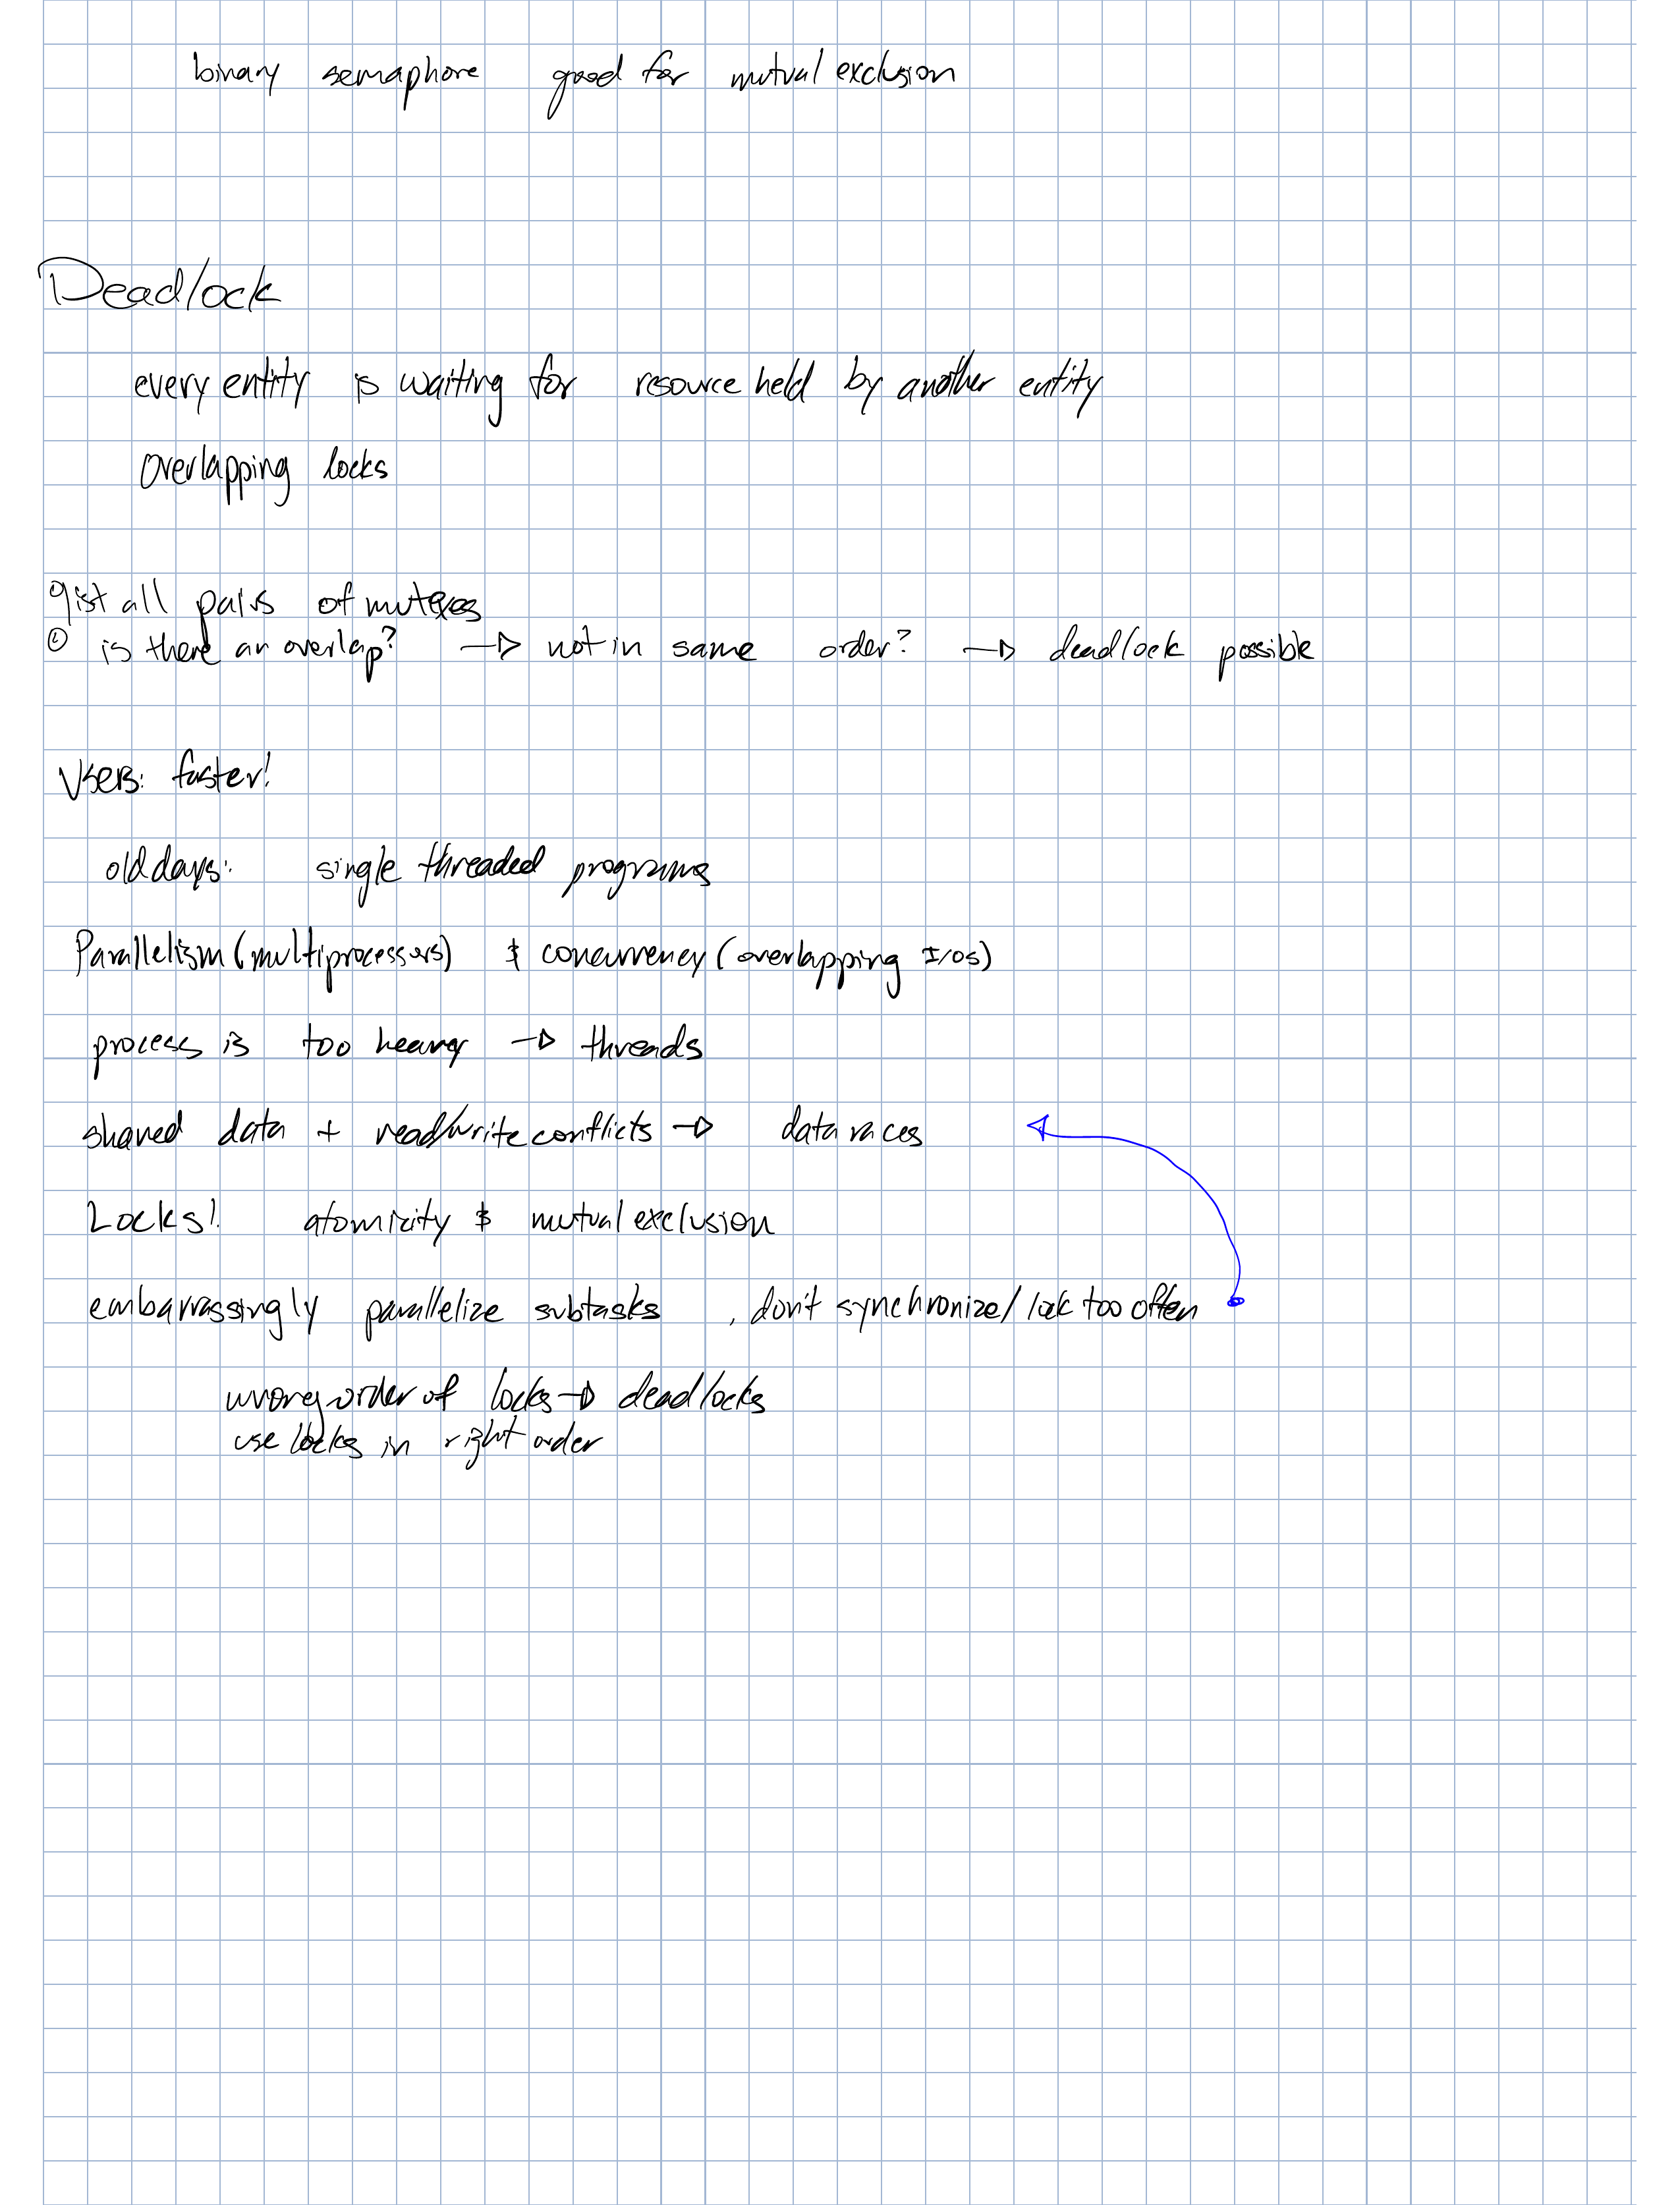 binary semaphore good for mutual exclusion
Deadlock
every entity is waiting for resource held by another entity
overlapping locks
list all pairs of mutexes
is there an overlap? → not in same order? → deadlock possible
Users: faster!
old days: single threaded programs
Parallelism (multiprocessers) & concurrency (overlapping I/Os)
process is too heavy → threads
shared data + read/write conflicts → data races
Locks! atomicity & mutual exclusion
embarrassingly parallelize subtasks , don't synchronize/lock too often
wrong order of locks → deadlocks
use locks in right order